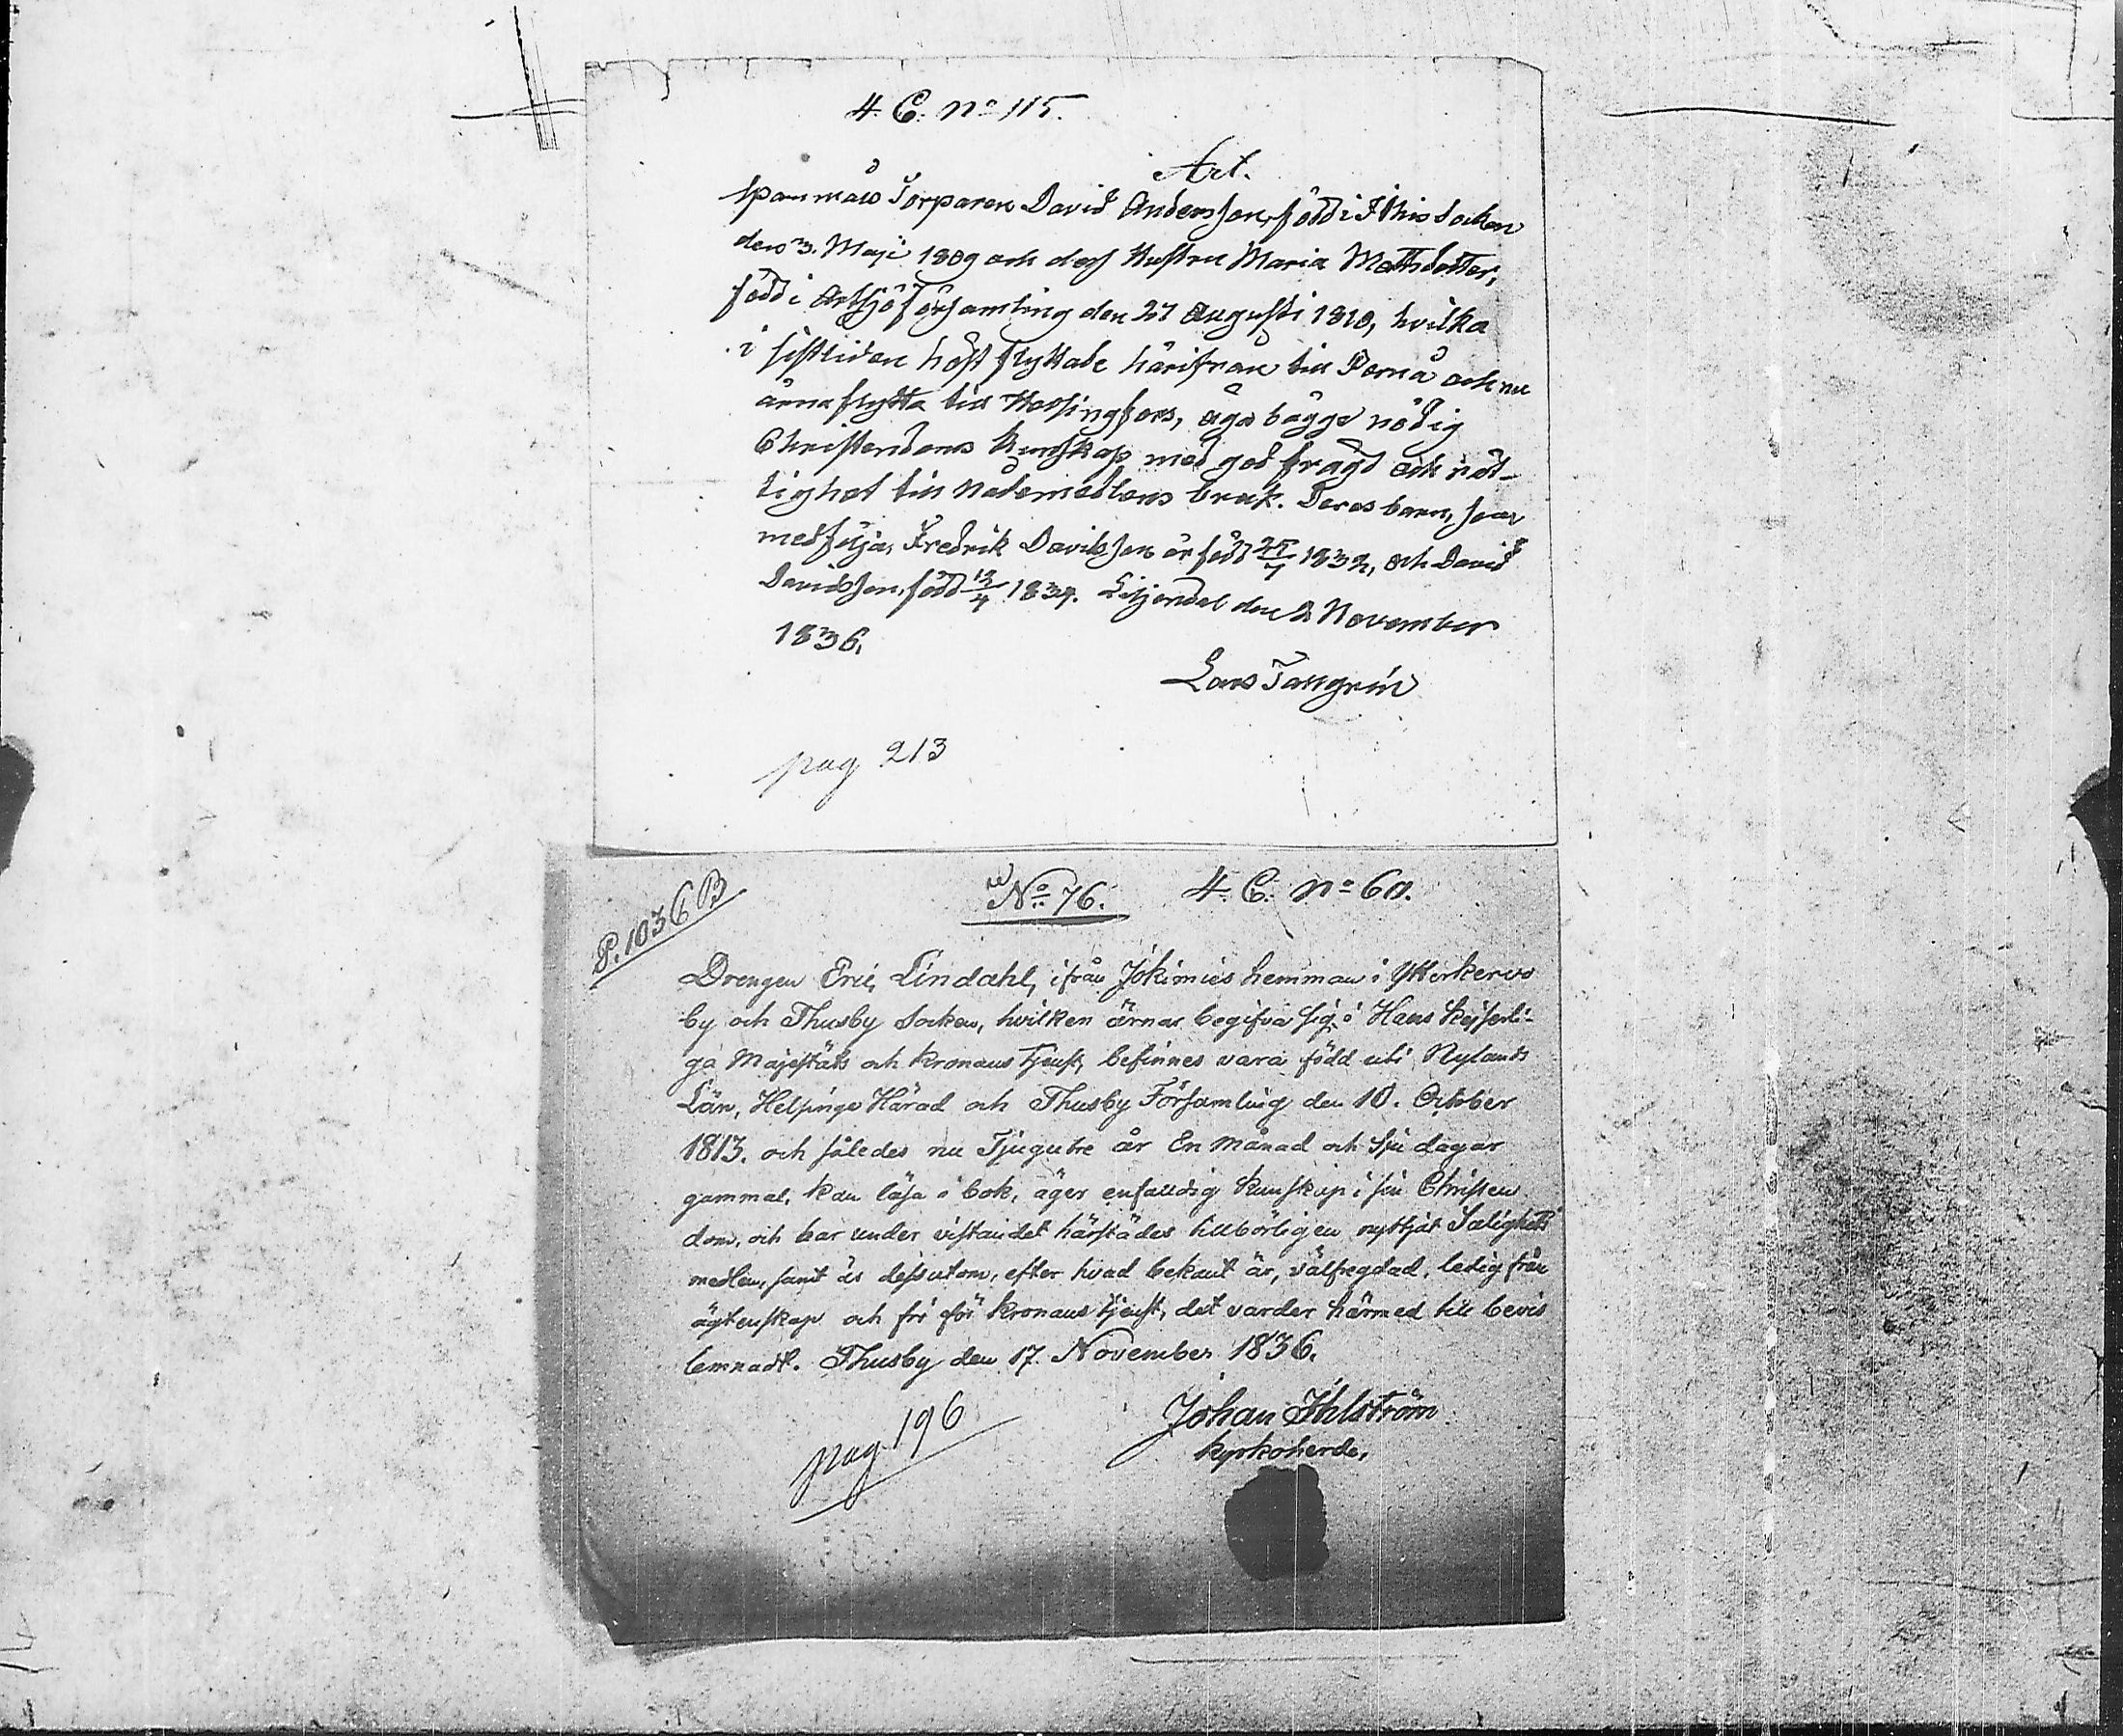 4. C. no 115.
Art.
Spanmåls Torparen David Andersson, född i Ithis Socken
den 3. Maji 1809 och dess Hustru Maria Mattsdotter,
född i Artsjö Församling den 27 Augusti 1810, hvilka
i sistliden höst flyttade härifrån till Pernå och nu
ärna flytta till Helsingfors, äga bägge nödig
Christendoms Kunskap med god frägd och rät-
tighet till nådemedlens bruk. Deras barn, som
medfölja, Fredrik Davidsson är född 25/7 1832, och David
Davidsson, född 12/4 1834. Liljendal den 2 November
1836.
Lars Tallgrén
pag 213
P. 1036 B
No 76. 4. C. no 60.
Drengen Eric Lindahl, ifrån Jokimies hemman i Ytterkervo
by och Thusby Socken, hvilken ärnar begifva sig i Hans Kejserli-
ga Majestäts och Kronans tjenst, befinnes vara född uti Nylands
Län, Helsinge Härad och Thusby Församling den 10. October
1813. och således nu Tjugutre år En månad och Sju dagar
gammal, kan läsa i bok, äger enfaldig kunskap i sin Christen
dom, och har under vistandet härstädes tillbörligen nyttjat Salighets
medlen, samt är dessutom, efter hvad bekant är, välfregdad, ledig från
ägtenskap och fri för Kronans tjenst, det varder härmed till bevis
lemnadt. Thusby den 17. November 1836.
Johan Ihlström
Kyrkoherde,
pag 196